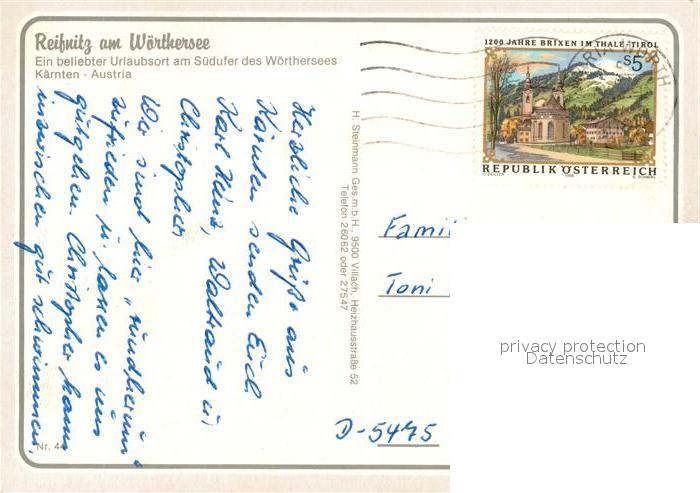 Reifnitz am Wörthersee
Ein beliebter Urlaubsort am Südufer des Wörthersees
Kärnten - Austria
1200 JAHRE BRIXEN IM THALE-TIROL
S5
REPUBLIK ÖSTERREICH
Herzliche Grüße aus
Kärnten senden Euch
Karl Heinz, Waltraud u.
Christopher
Wir sind hier „rundherum"
zufrieden u. lassen es uns
gutgehen. Christopher kann
inzwischen gut schwimmen.
H. Steinmann Ges.m.b.H., 9500 Villach, Heizhausstraße 52
Telefon 26062 oder 27547
Famil
Toni
D-5475
Nr. 44
privacy protection
Datenschutz